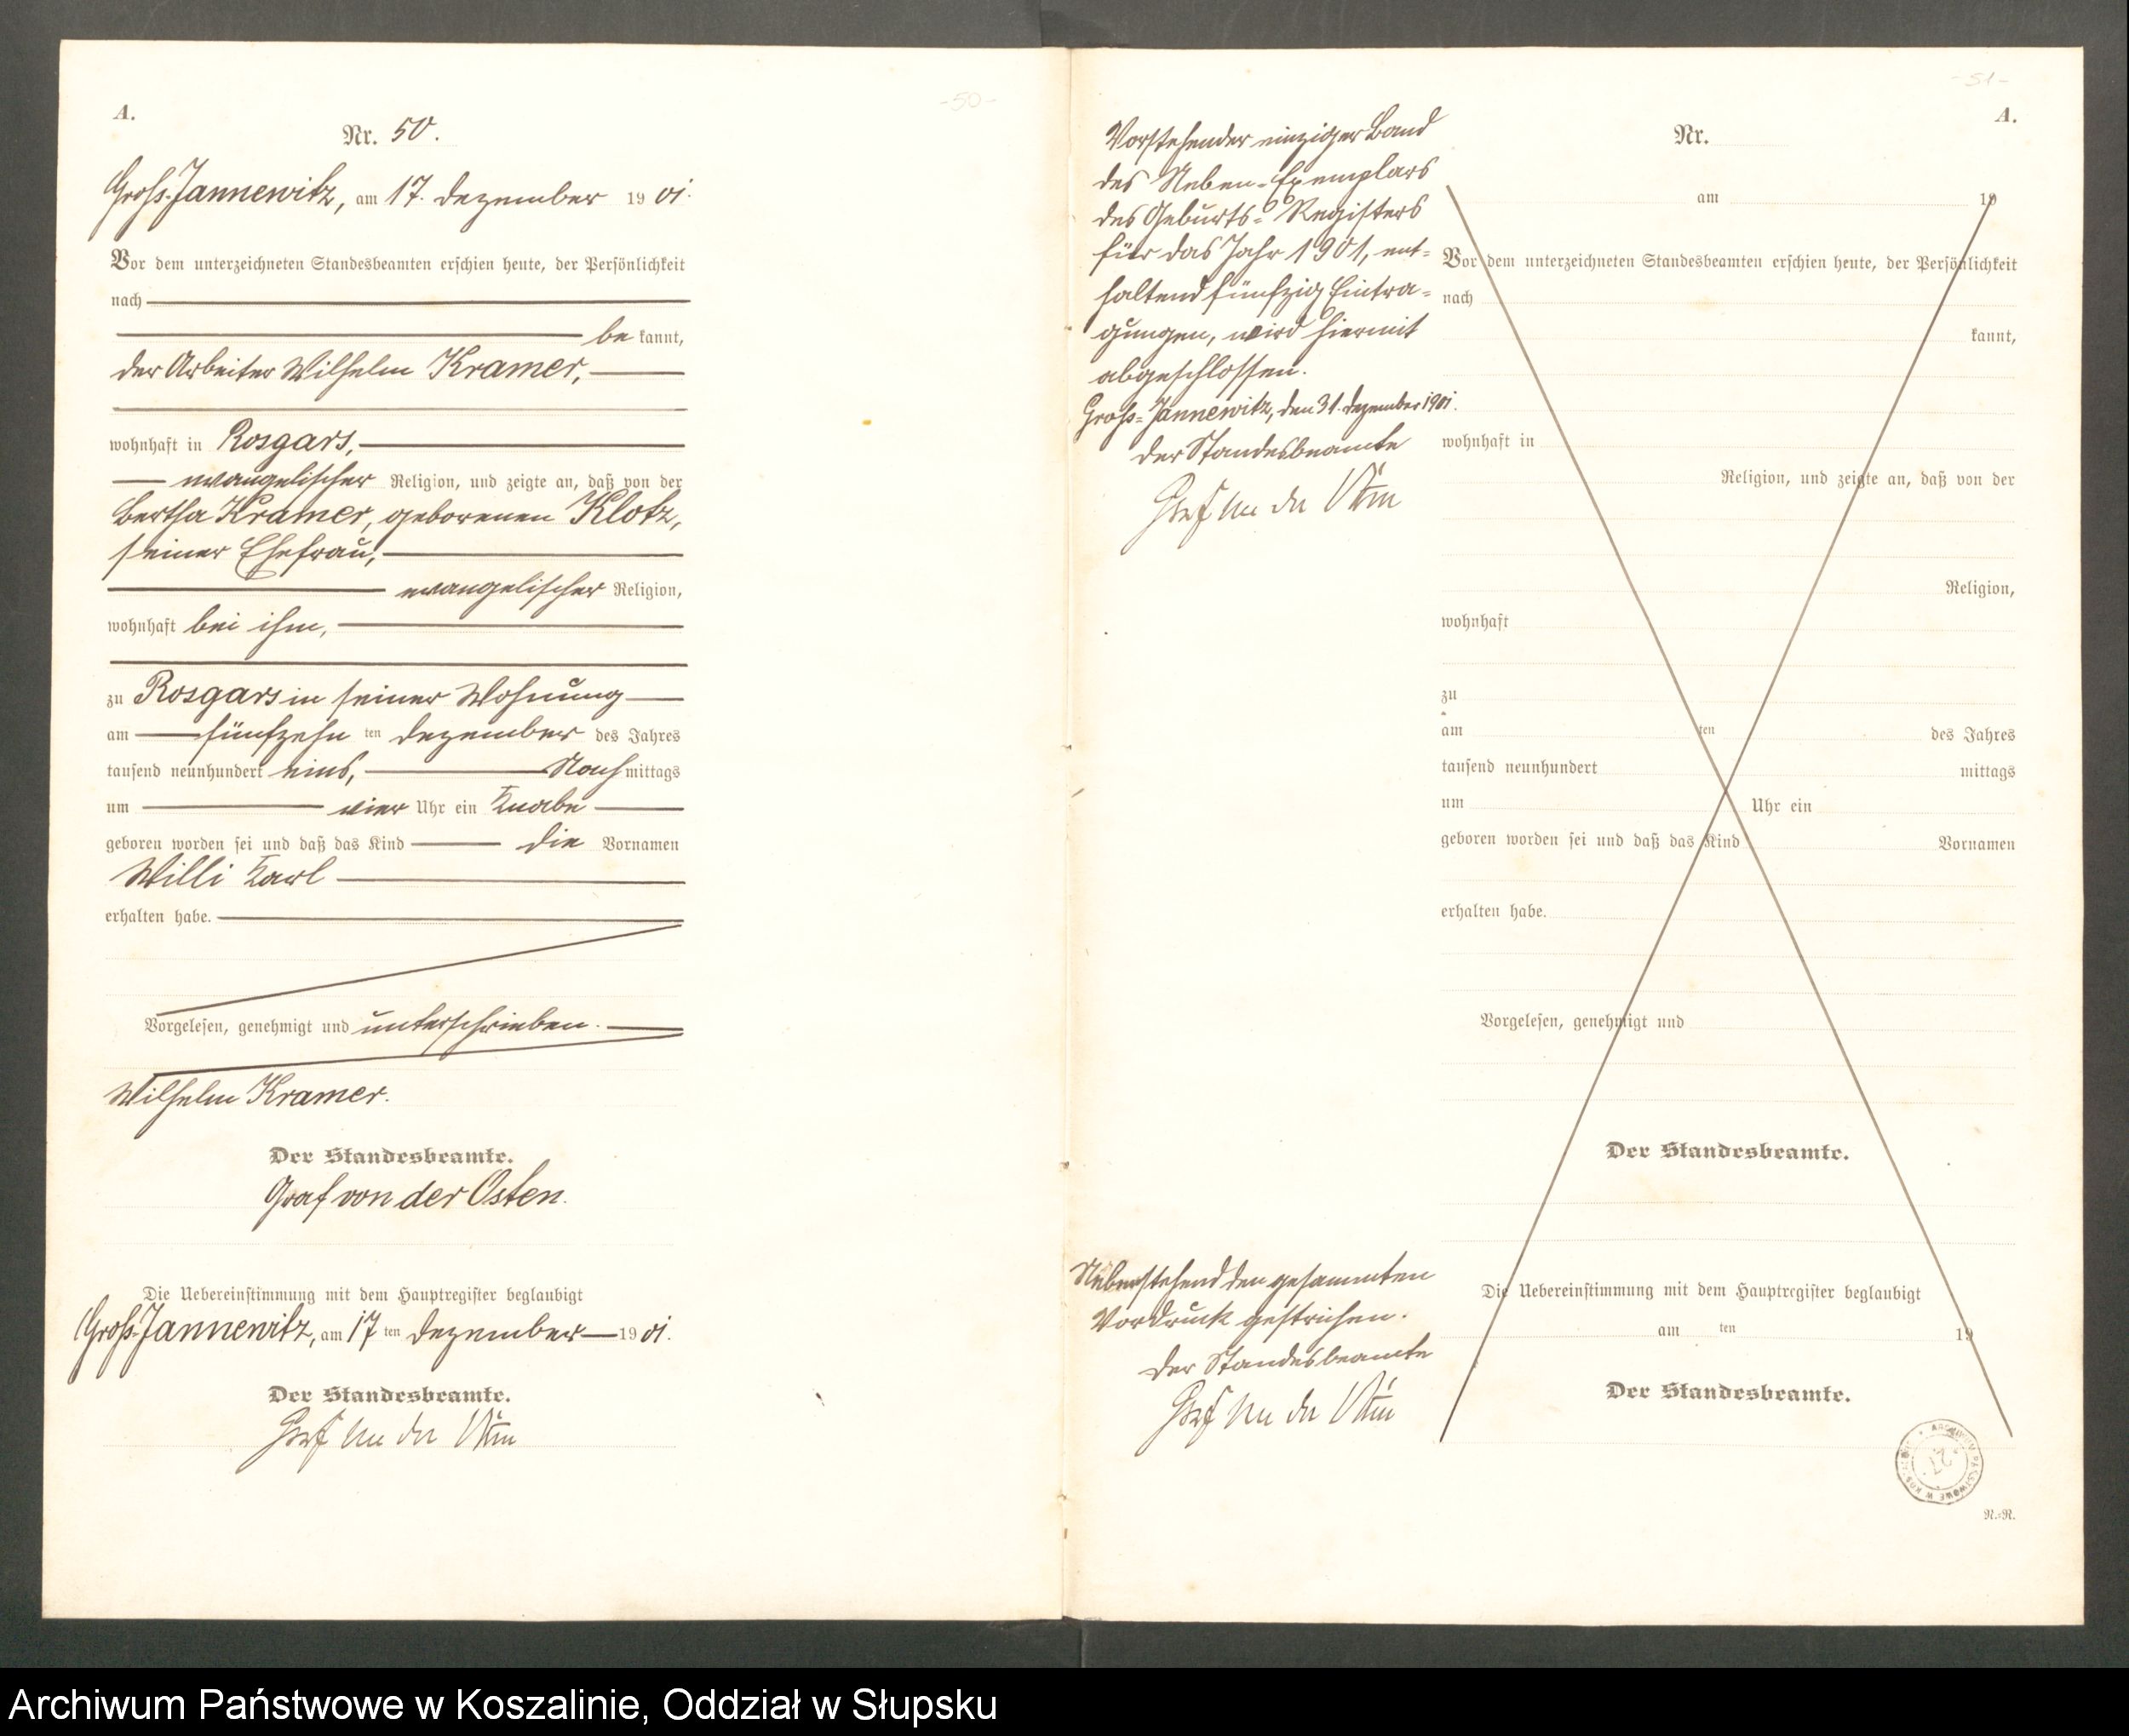 -50-
A.
Nr. 50.
Groß-Jannewitz, am 17. Dezember 1901.
Vor dem unterzeichneten Standesbeamten erschien heute, der Persönlichkeit
nach
be kannt,
der Arbeiter Wilhelm Kramer,
wohnhaft in Rosgars,
evangelischer Religion, und zeigte an, daß von der
Bertha Kramer, geborenen Klotz,
seiner Ehefrau,
evangelischer Religion,
wohnhaft bei ihm,
zu Rosgars in seiner Wohnung
am fünfzehn ten Dezember des Jahres
tausend neunhundert eins, Nach mittags
um vier Uhr ein Knabe
geboren worden sei und daß das Kind die Vornamen
Willi Karl
erhalten habe.
Vorgelesen, genehmigt und unterschrieben.
Wilhelm Kramer.
Der Standesbeamte.
Graf von der Osten.
Die Uebereinstimmung mit dem Hauptregister beglaubigt
Groß-Jannewitz, am 17 ten Dezember 1901.
Der Standesbeamte.
Graf von der Osten
-51-
A.
Vorstehender einziger Band
des Neben-Exemplars
des Geburts-Registers
für das Jahr 1901, ent-
haltend fünfzig Eintra-
gungen, wird hiermit
abgeschlossen.
Groß-Jannewitz, den 31. Dezember 1901.
Der Standesbeamte
Graf von der Osten
Nebenstehend den gesammten
Vordruck gestrichen.
Der Standesbeamte
Graf von der Osten
Nr.
am 19
Vor dem unterzeichneten Standesbeamten erschien heute, der Persönlichkeit
nach
kannt,
wohnhaft in
Religion, und zeigte an, daß von der
Religion,
wohnhaft
zu
am ten des Jahres
tausend neunhundert mittags
um Uhr ein
geboren worden sei und daß das Kind Vornamen
erhalten habe.
Vorgelesen, genehmigt und
Der Standesbeamte.
Die Uebereinstimmung mit dem Hauptregister beglaubigt
am ten 19
Der Standesbeamte.
27
R.-R.
Archiwum Państwowe w Koszalinie, Oddział w Słupsku